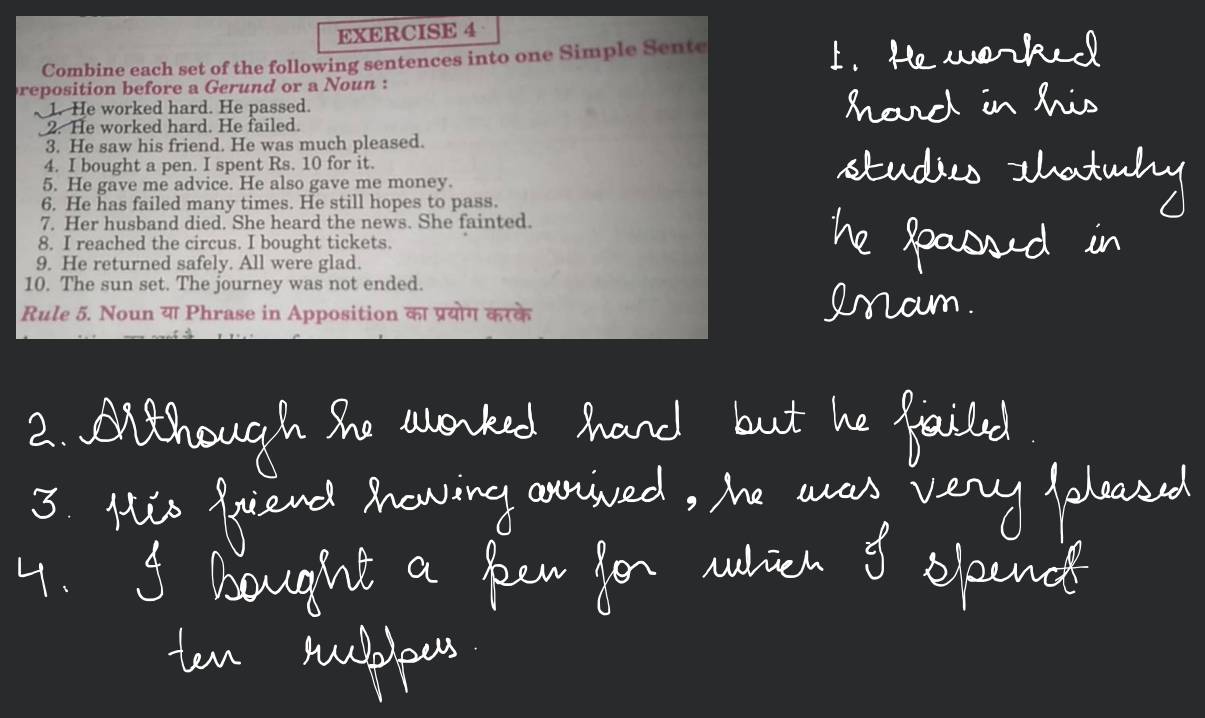 EXERCISE 4
Combine each set of the following sentences into one Simple Sente
reposition before a Gerund or a Noun :
1. He worked hard. He passed.
2. He worked hard. He failed.
3. He saw his friend. He was much pleased.
4. I bought a pen. I spent Rs. 10 for it.
5. He gave me advice. He also gave me money.
6. He has failed many times. He still hopes to pass.
7. Her husband died. She heard the news. She fainted.
8. I reached the circus. I bought tickets.
9. He returned safely. All were glad.
10. The sun set. The journey was not ended.
Rule 5. Noun या Phrase in Apposition का प्रयोग करके
1. He worked
hard in his
studies thatwhy
he passed in
exam.
2. Although he worked hard but he failed.
3. His friend having arrived, he was very pleased
4. I bought a pen for which I spent
ten ruppes.